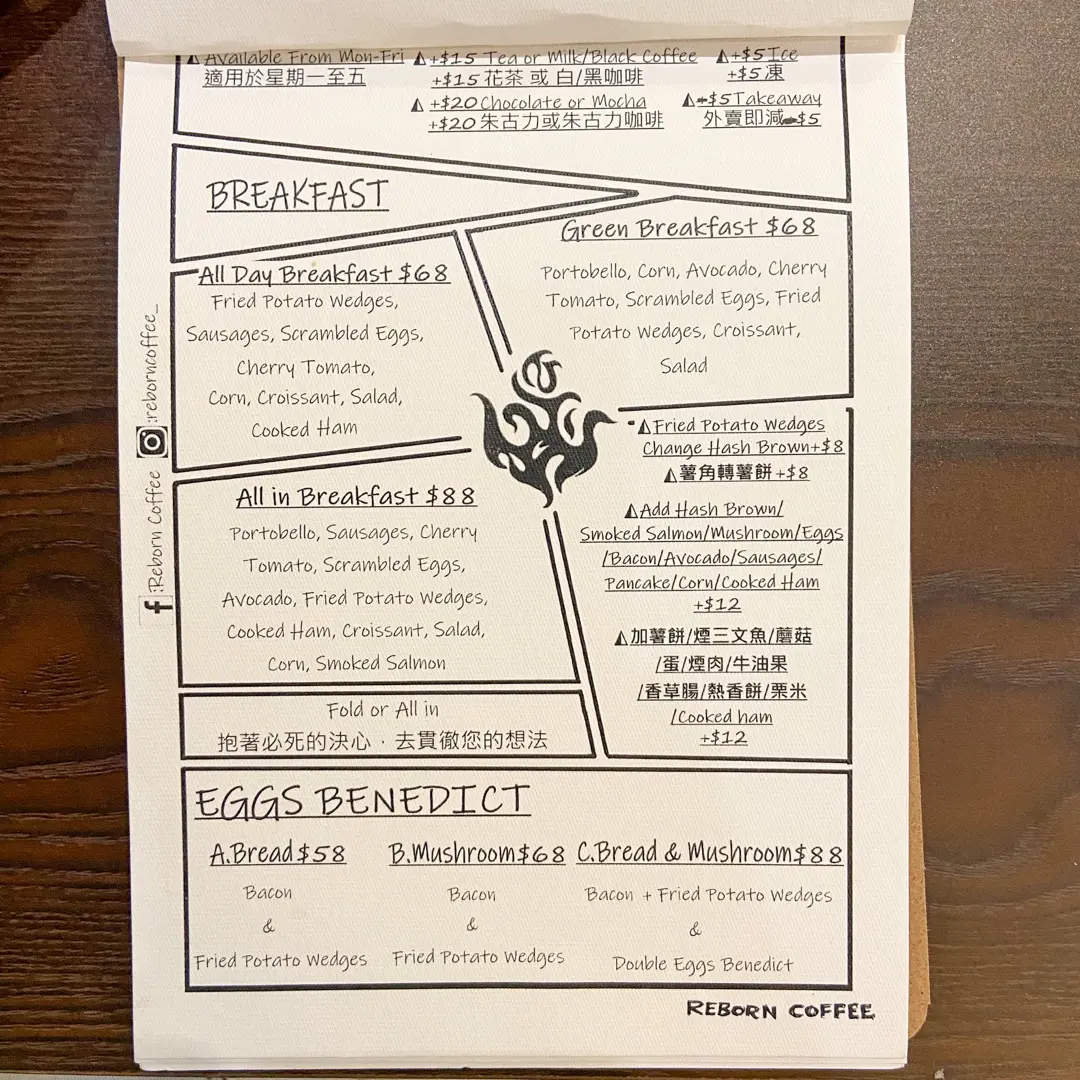 Available From Mon-Fri
適用於星期一至五
+$15 Tea or Milk/Black Coffee
+$15 花茶 或 白/黑咖啡
+$20 Chocolate or Mocha
+$20 朱古力或朱古力咖啡
+$5 Ice
+$5 凍
$5 Takeaway
外賣即減 $5
BREAKFAST
All Day Breakfast $68
Fried Potato Wedges,
Sausages, Scrambled Eggs,
Cherry Tomato,
Corn, Croissant, Salad,
Cooked Ham
Green Breakfast $68
Portobello, Corn, Avocado, Cherry
Tomato, Scrambled Eggs, Fried
Potato Wedges, Croissant,
Salad
All in Breakfast $88
Portobello, Sausages, Cherry
Tomato, Scrambled Eggs,
Avocado, Fried Potato Wedges,
Cooked Ham, Croissant, Salad,
Corn, Smoked Salmon
Fried Potato Wedges
Change Hash Brown+$8
薯角轉薯餅 +$8
Add Hash Brown/
Smoked Salmon/Mushroom/Eggs
/Bacon/Avocado/Sausages/
Pancake/Corn/Cooked Ham
+$12
加薯餅/煙三文魚/蘑菇
/蛋/煙肉/牛油果
/香草腸/熱香餅/粟米
/Cooked ham
+$12
Fold or All in
抱著必死的決心，去貫徹您的想法
EGGS BENEDICT
A.Bread $58
Bacon
&
Fried Potato Wedges
B.Mushroom $68
Bacon
&
Fried Potato Wedges
C.Bread & Mushroom $88
Bacon + Fried Potato Wedges
&
Double Eggs Benedict
REBORN COFFEE
f:Reborn Coffee
:reborncoffee_